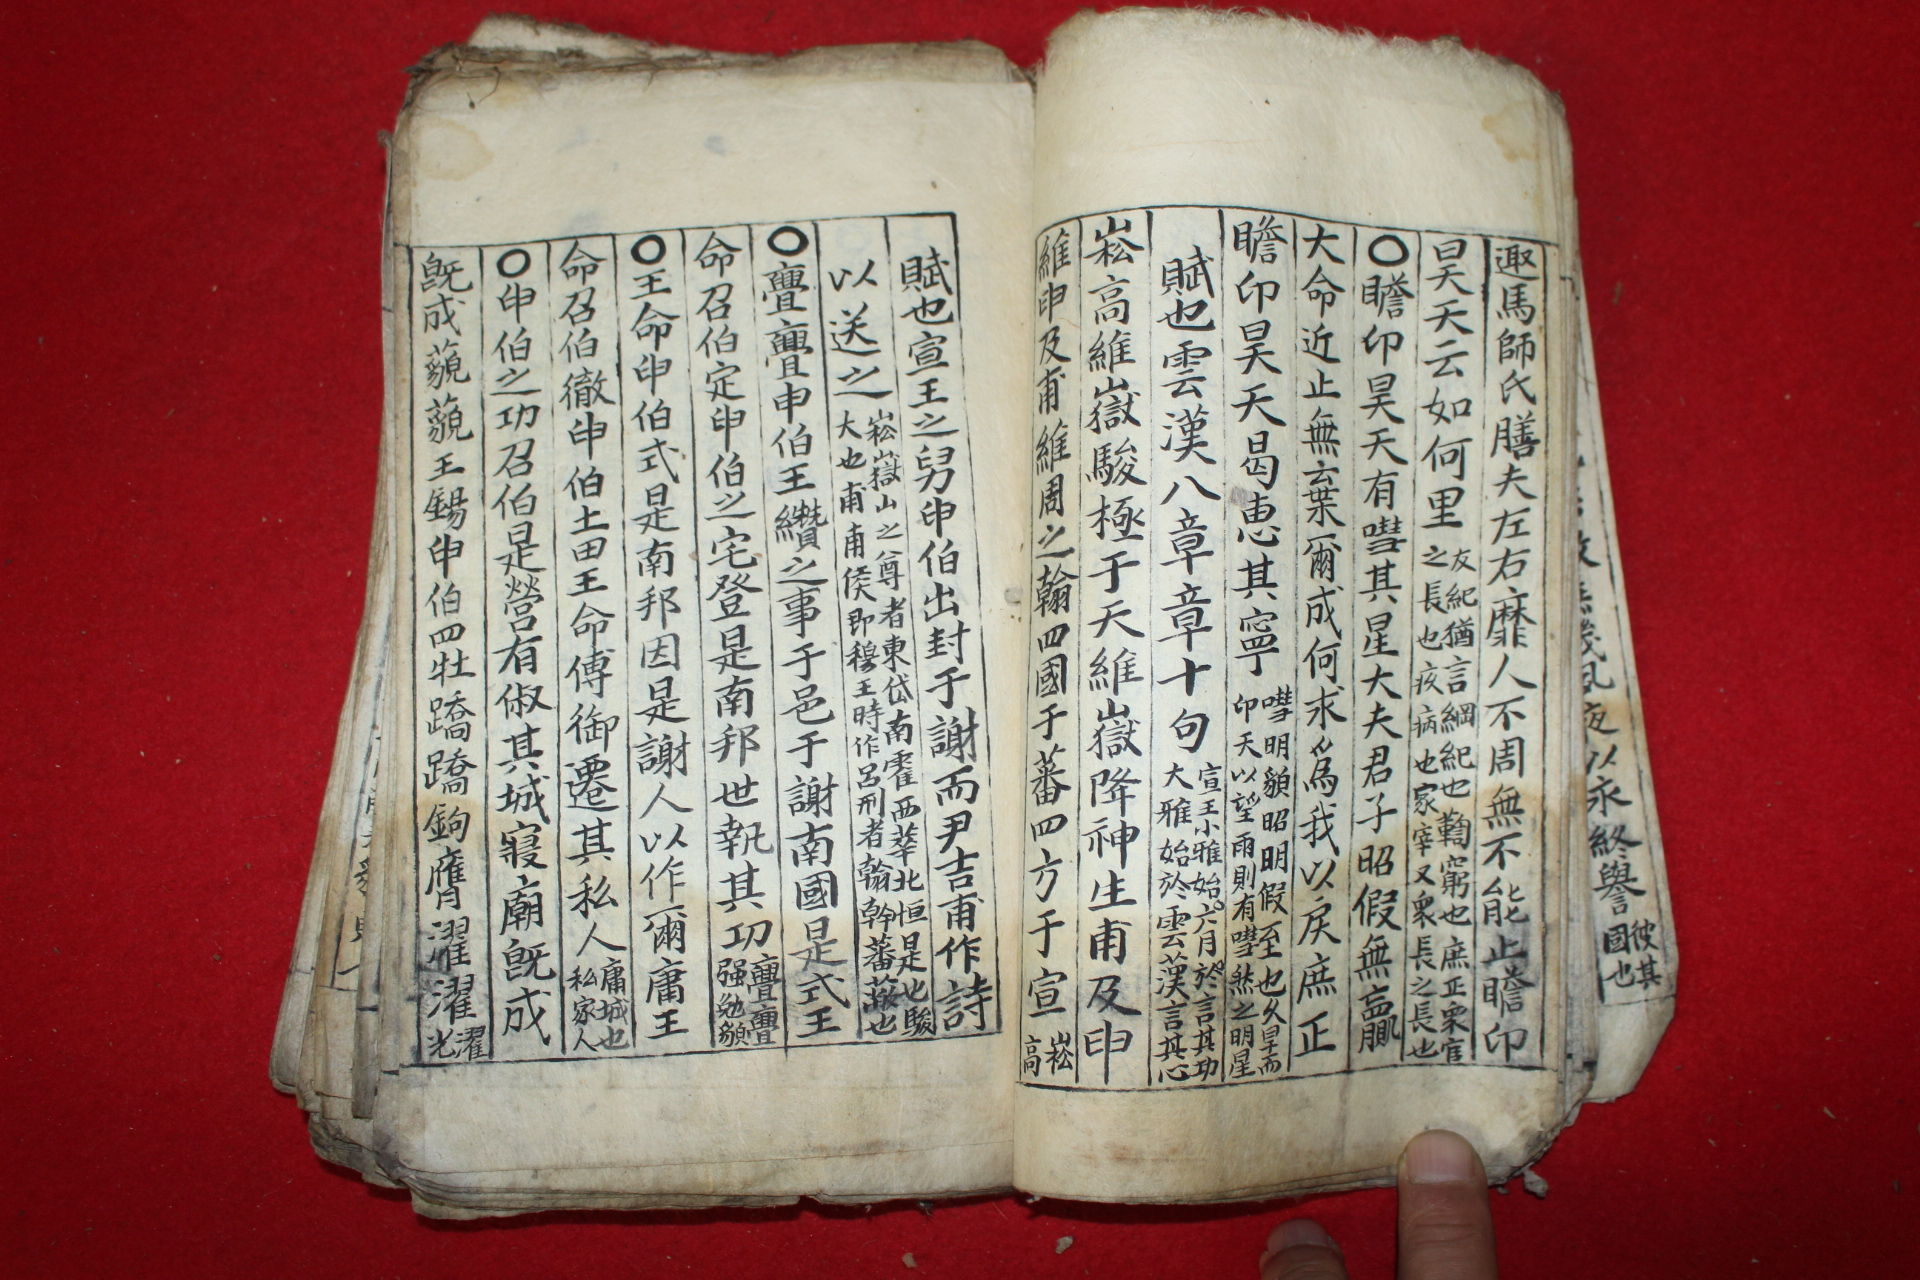 夙夜以永終譽
彼其
國也
趣馬師氏膳夫左右靡人不周無不能止瞻卬
昊天云如何里
友紀猶言綱紀也鞫窮也庶正衆官
之長也疚病也家宰又衆長之長也
〇瞻卬昊天有嘒其星大夫君子昭假無贏
大命近止無棄爾成何求爲我以戾庶正
瞻卬昊天曷惠其寧
嘒明貌昭明假至也久旱而
卬天以望雨則有嘒然之明星
賦也雲漢八章章十句
宣王小雅始六月於言其功
大雅始於雲漢言其心
崧高維嶽駿極于天維嶽降神生甫及申
維申及甫維周之翰四國于蕃四方于宣
崧
高
賦也宣王之舅申伯出封于謝而尹吉甫作詩
以送之
崧嶽山之尊者東岱南霍西華北恒是也駿
大也甫甫侯即穆王時作呂刑者翰幹蕃蔽也
〇亹亹申伯王纘之事于邑于謝南國是式王
命召伯定申伯之宅登是南邦世執其功
亹亹
强勉貌
〇王命申伯式是南邦因是謝人以作爾庸王
命召伯徹申伯土田王命傅御遷其私人
庸城也
私家人
〇申伯之功召伯是營有俶其城寢廟既成
既成藐藐王錫申伯四牡蹻蹻鉤膺濯濯
濯
光